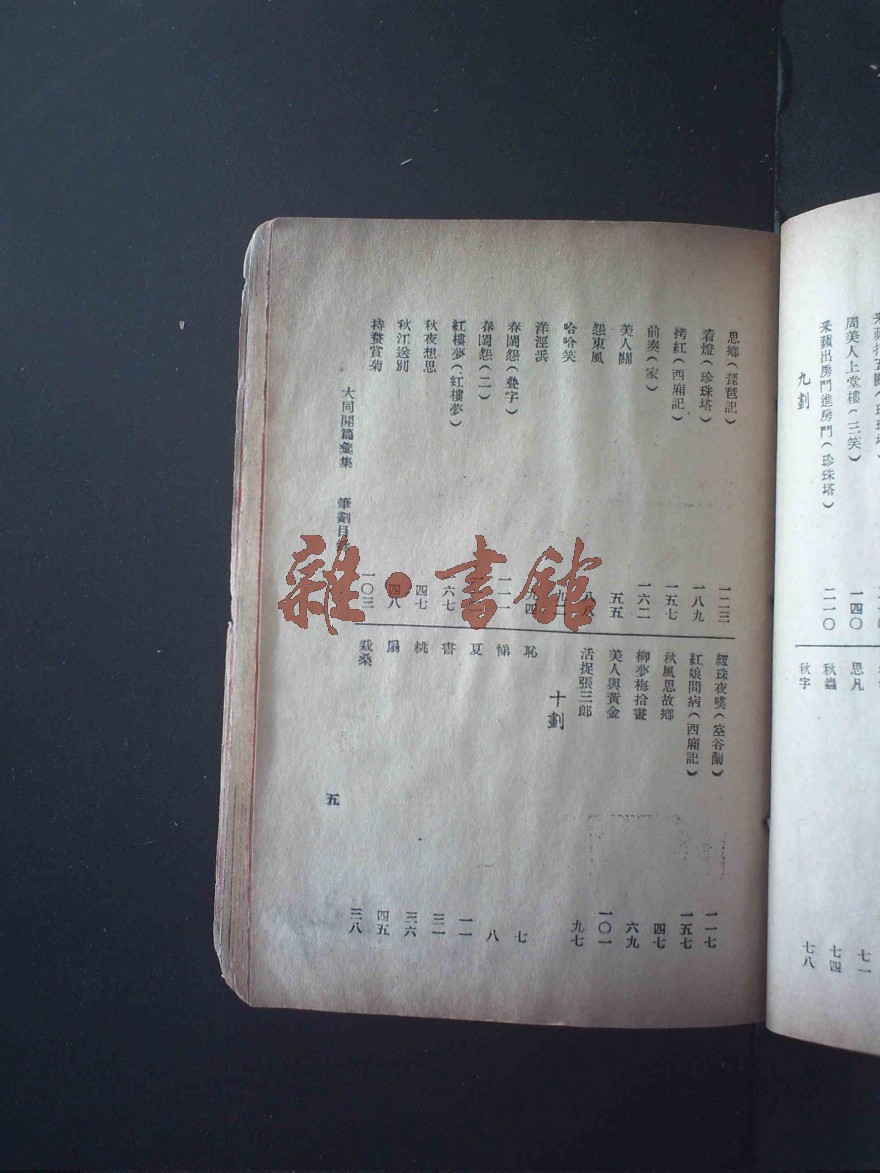 采蘋出房門進房門(珍珠塔) 二一〇
周美人上堂樓(三笑) 一四〇
九劃
思凡 七一
秋蟲 七四
秋字 七八
思鄉(琵琶記) 一二三
看燈(珍珠塔) 一八九
拷紅(西廂記) 一五七
前奏(家) 一六二
美人關 五五
怨東風
哈哈笑
洋涇浜
春閨怨(疊字)
春閨怨(二)
紅樓夢(紅樓夢) 六七
秋夜想思 四七
秋江送別 四八
持螯賞菊 一〇三
紉珠夜嘆(空谷蘭) 一一七
紅娘問病(西廂記) 一五七
秋風思故鄉 四七
柳夢梅拾畫 六九
美人與黃金 一〇一
活捉張三郎 九七
十劃
恥 七
悌 八
夏 一一
書 三一
桃 三六
扇 四五
栽桑 三八
大同開篇彙集 筆劃目
五
雜·書館